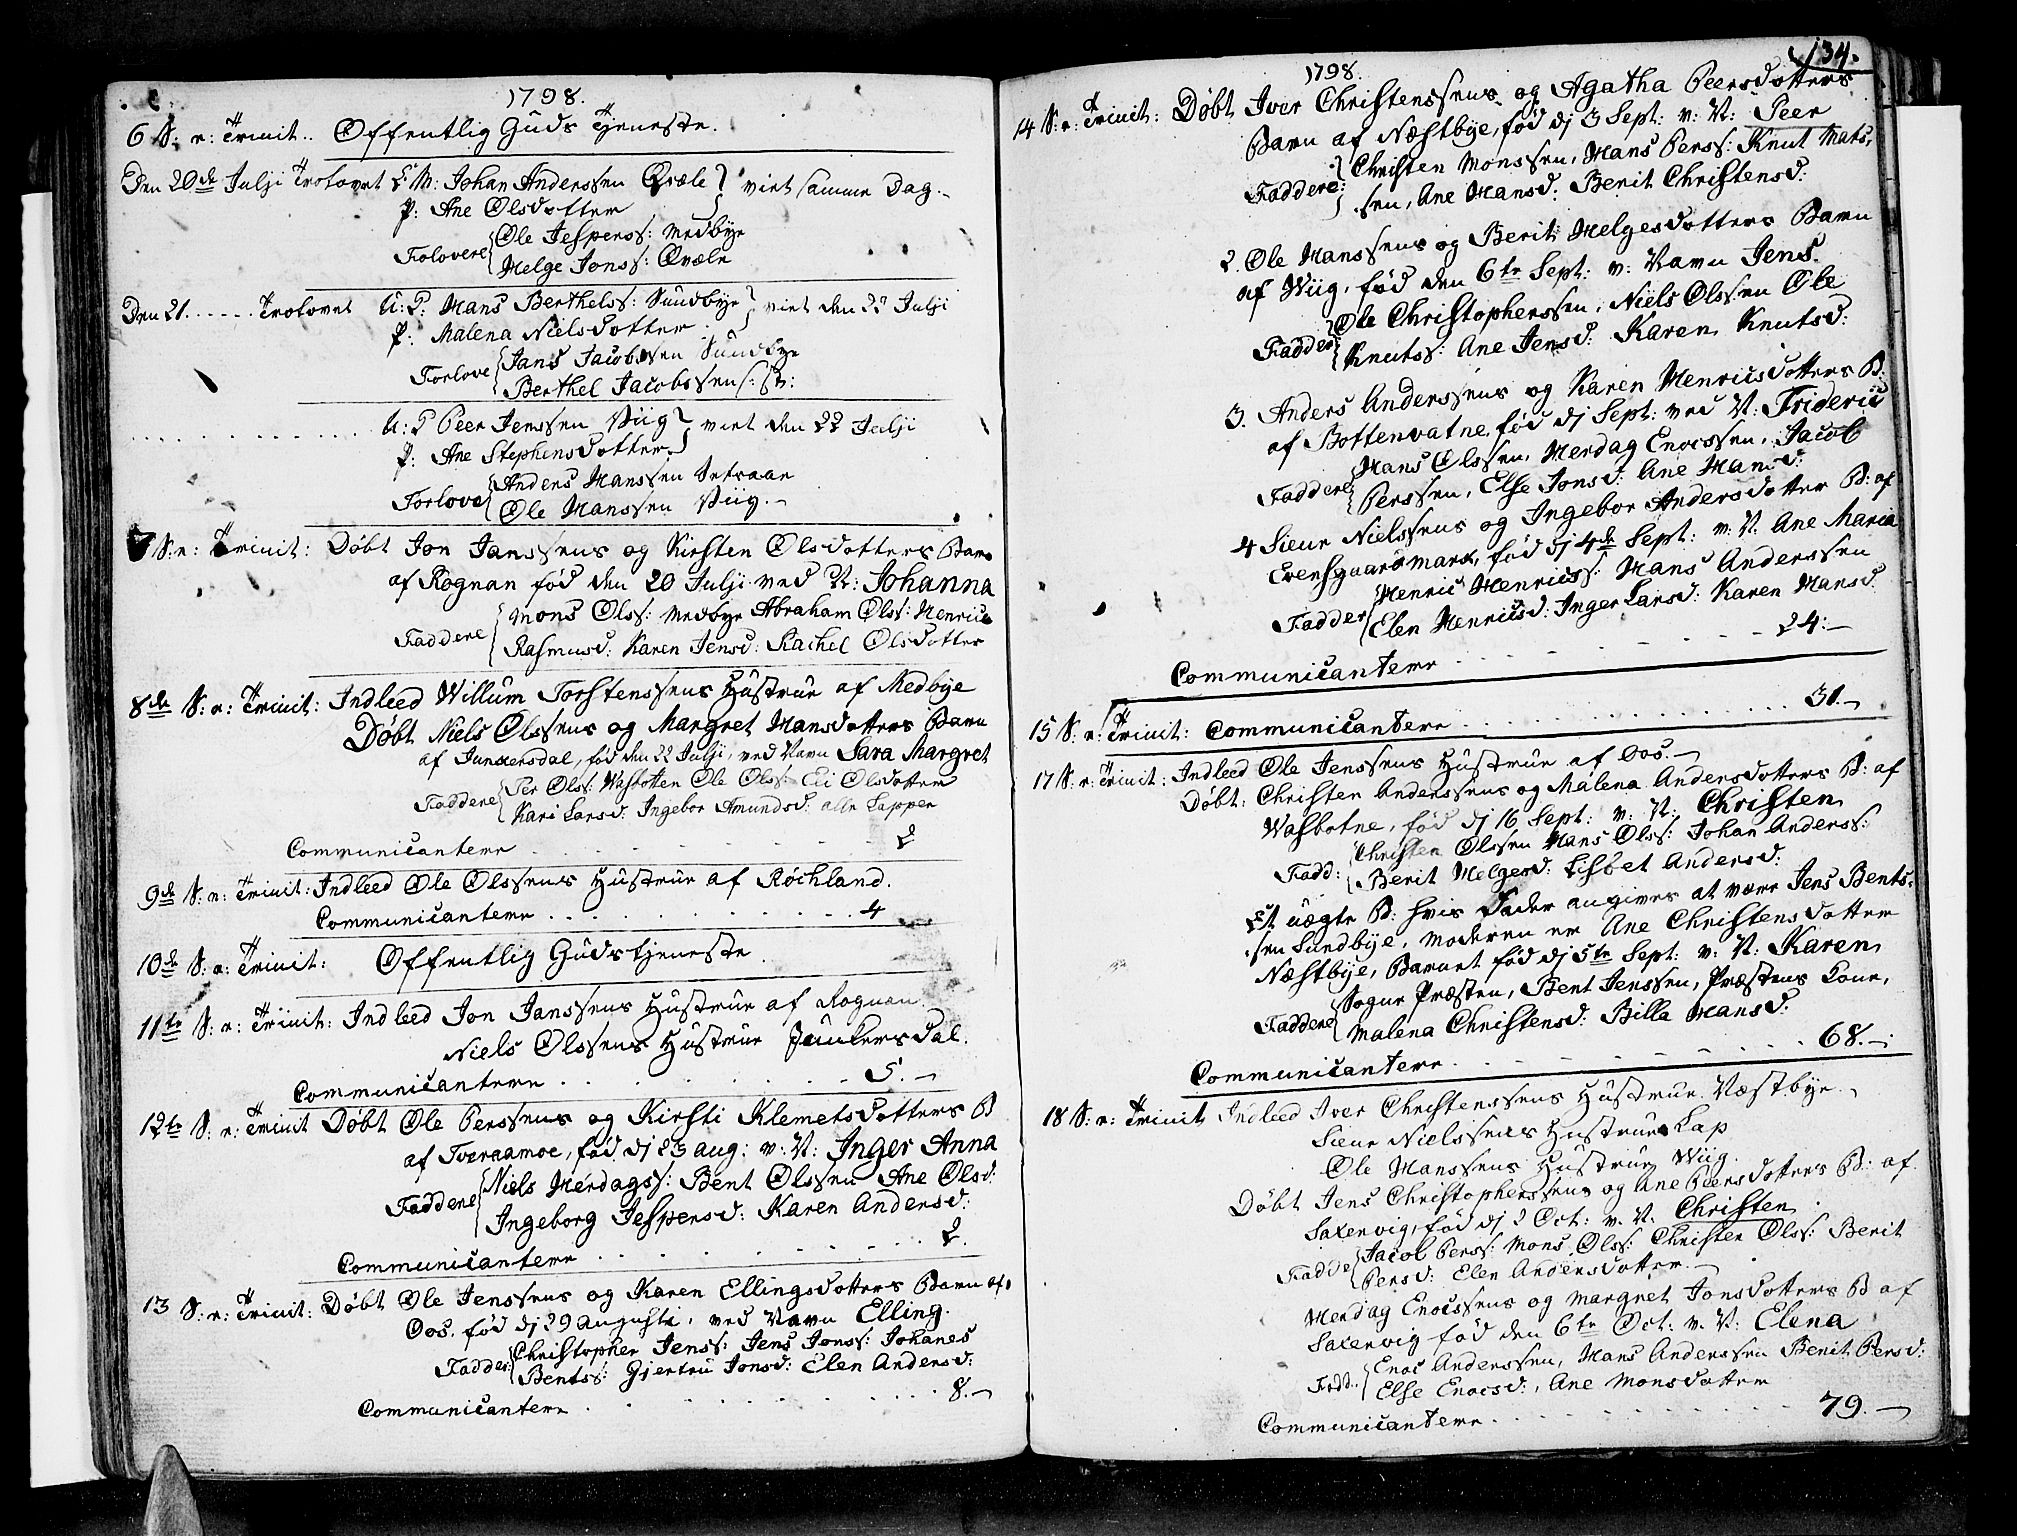 1798.
6 S: e: Trinit.. Offentlig Guds Tjeneste.
Den 20de Julji Trolovet E: M: Johan Anderssen Qvæle } viet samme Dag.
P: Ane Olsdotter
Folovere { Ole Jespers: Medbye
Helge Jonss: Qvæle
Den 21. . . . . . Trolovet U: K: Hans Berthelss: Sundbye } viet den 22 Julji
P: Malena Nielsdotter
Forlove { Jans Jacobssen Sundbye
Berthel Jacobssen
U: K Peer Jenssen Viig } viet den 22 Julji
P: Ane Stephensdotter
Forlove { Anders Hanssen Setraae
Ole Hanssen Viig. -
7 S: e: Trinit: Døbt Jon Janssens og Kirsten Olsdotters Barn
af Rognan fød den 20 Julji ved N: Johanna
Faddere { Mons Olss: Medbye Abraham Olss: Henrica
Rasmusd: Karen Jensd: Rachel Olsdotter
8de S: e: Trinit: Indleed Willum Torstenssens Hustrue af Medbye
Døbt Niels Olssens og Margret Hansdotters Barn
af Junkersdal, fød den 22 Julji, ved Navn Sara Margret
Faddere { Per Olss: Wasbotten Ole Olss: Eli Olsdotter
Kari Larsd: Ingebor Amundsd: alle Lapper
Communicantere . . . . . . 2
9de S: e: Trinit: Indleed Ole Olssens Hustrue af Røchland.
Communicantere . . . . . . 4
10de S: e: Trinit: Offentlig Gudstjeneste.
11te S: e: Trinit: Indleed Jon Janssens Hustrue af Rognan
Niels Olssens Hustrue Junkersdal.
Communicantere . . . . . . 5. -
12te S: e: Trinit Døbt Ole Perssens og Kirsti Klemetsdotters B
af Tveraamoe, fød dj 23 aug: v: N: Inger Anna
Faddere { Niels Herdagss: Bent Olssen Ane Olsd:
Ingeborg Jespersd: Karen Andersd:
Communicantere . . . . . . 2.
13 S: e: Trinit: Døbt Ole Jenssens og Karen Ellingsdotters Barn af
Oos, fød dj 29 Augusti, ved Navn Elling.
Fadder { Christopher Jenss: Jens Jonss: Johanes
Bentss: Gjertru Jonsd: Elen Andersd:
Communicantere . . . . . . 8. -
134.
1798.
14 S: e: Trinit: Døbt Iver Christenssens og Agatha Peersdotters
Barn af Næstbye, fød dj 3 Sept: v: N: Peer
Faddere { Christen Monssen, Hans Perss: Knut Mats,
sen, Ane Hansd: Berit Christensd:
2. Ole Hanssens og Berit Helgesdotters Barn
af Wiig, fød den 6te Sept: v: Navn Jens.
Fadder { Ole Christophersen, Niels Olssen Ole
Knutss: Ane Jensd: Karen Knutsd:
3. Anders Anderssens og Karen Henricsdotters B:
af Bottenvatne, fød dj Sept: ved N: Frideric
Faddere { Hans Olssen, Herdag Enocssen, Jacob
Perssen, Else Jonsd: Ane Hansd:
4 Sieur Nielssens og Ingebor Andersdotter B: af
Evensgaardmark, fød dj 4de Sept: v: N: Ane Maria
Fadder { Henric Henricss: Hans Anderssen
Elen Henricsd: Inger Larsd: Karen Hansd:
Communicantere . . . . . . 24: -
15 S: e: Trinit: Communicantere . . . . . . 31. -
17 S: e: Trinit: Indleed Ole Jenssens Hustrue af Oos. -
Døbt: Christen Anderssens og Malena Andersdotters B: af
Wasbotne, fød dj 16 Sept: v: N: Christen
Fadd: { Christen Olssen Hans Olss: Johan Anderss:
Berit Helgesd: Lisbet Andersd:
Et uægte B: hvis Fader angives at være Jens Bents,
sen Sundbye, Moderen er Ane Christensdotter
Næstbye, Barnet fød dj 5te Sept: v: N: Karen
Faddere { Sogne Præsten, Bent Jenssen, Præstens Kone,
Malena Christensd: Billa Hansd:
Communicantere . . . . . . 68. -
18 S: e: Trinit Indleed Iver Christenssens Hustrue Næstbye. -
Sieur Nielssens Hustrue Lap
Ole Hanssens Hustrue Wiig.
Døbt Jens Christophersens og Ane Peersdotters B: af
Saxenvig, fød dj 2 Oct: v. N. Christen
Fadde { Jacob Perss: Mons Olss: Christen Olss: Berit
Persd: Elen Andersdotter. -
Herdag Enocssens og Margret Jonsdotters B af
Saxenvig fød den 6te Oct: v. N: Elena
Fadd. { Enoc Anderssen, Hans Anderssen Berit Persd:
Else Enocsd:, Ane Monsdotter
Communicantere . . . . . . 79. -